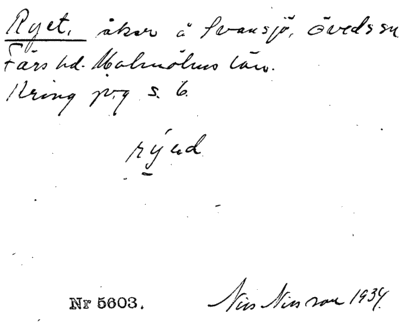 Ryet, åker å Svansjö, Öveds sn
Färs hd. Malmöhus län.
Kring p.g s. 6.
rýed
Nr 5603.
Nils Nilsson 1934.